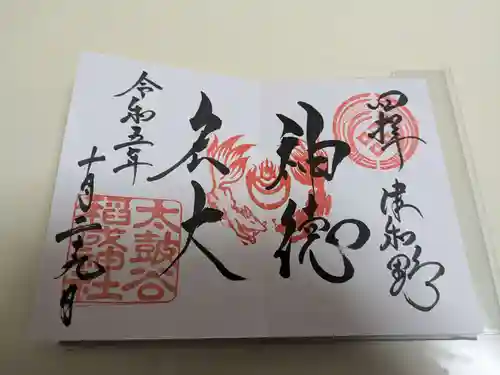 四拝 津和野
神徳
宏大
令和五年
十月二十九日
太鼓谷
稲成神社